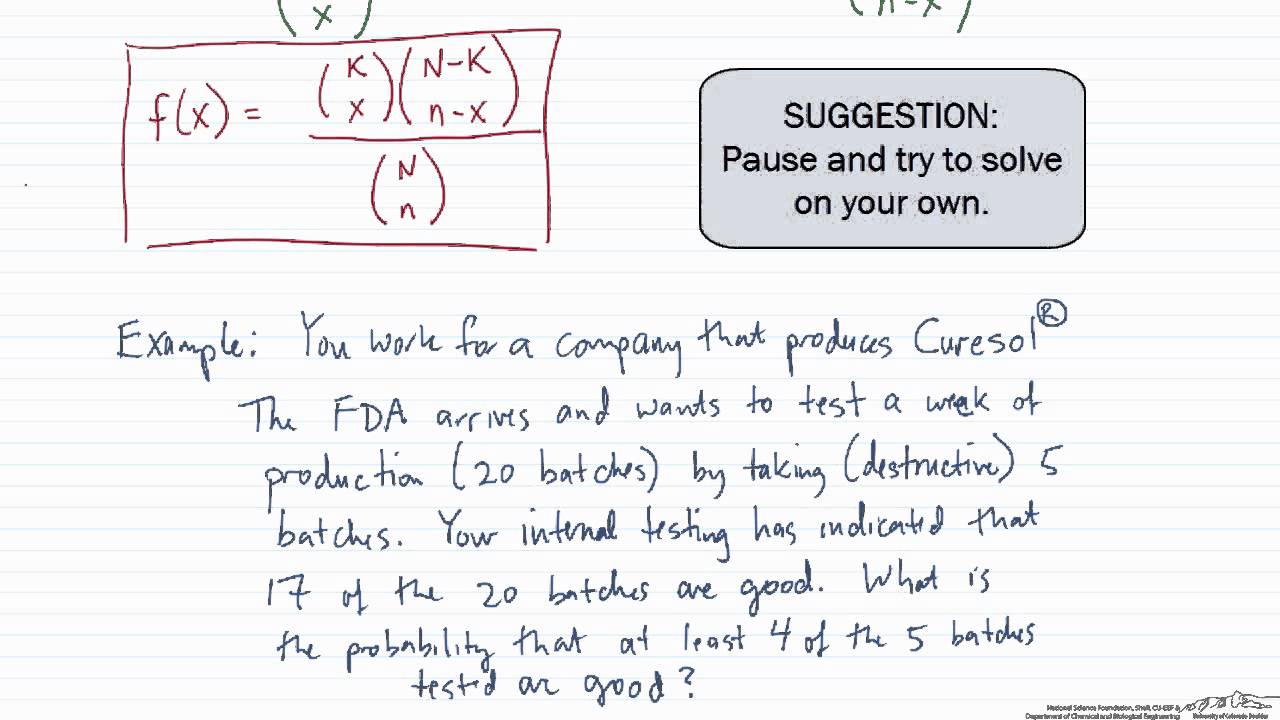 (x) (n-x)
f(x) = (K x)(N-K n-x)
(N n)
SUGGESTION:
Pause and try to solve
on your own.
Example: You work for a company that produces Curesol®
The FDA arrives and wants to test a week of
production (20 batches) by taking (destructive) 5
batches. Your internal testing has indicated that
17 of the 20 batches are good. What is
the probability that at least 4 of the 5 batches
tested are good?
National Science Foundation, Shell, CU-EEF &
Department of Chemical and Biological Engineering
University of Colorado Boulder